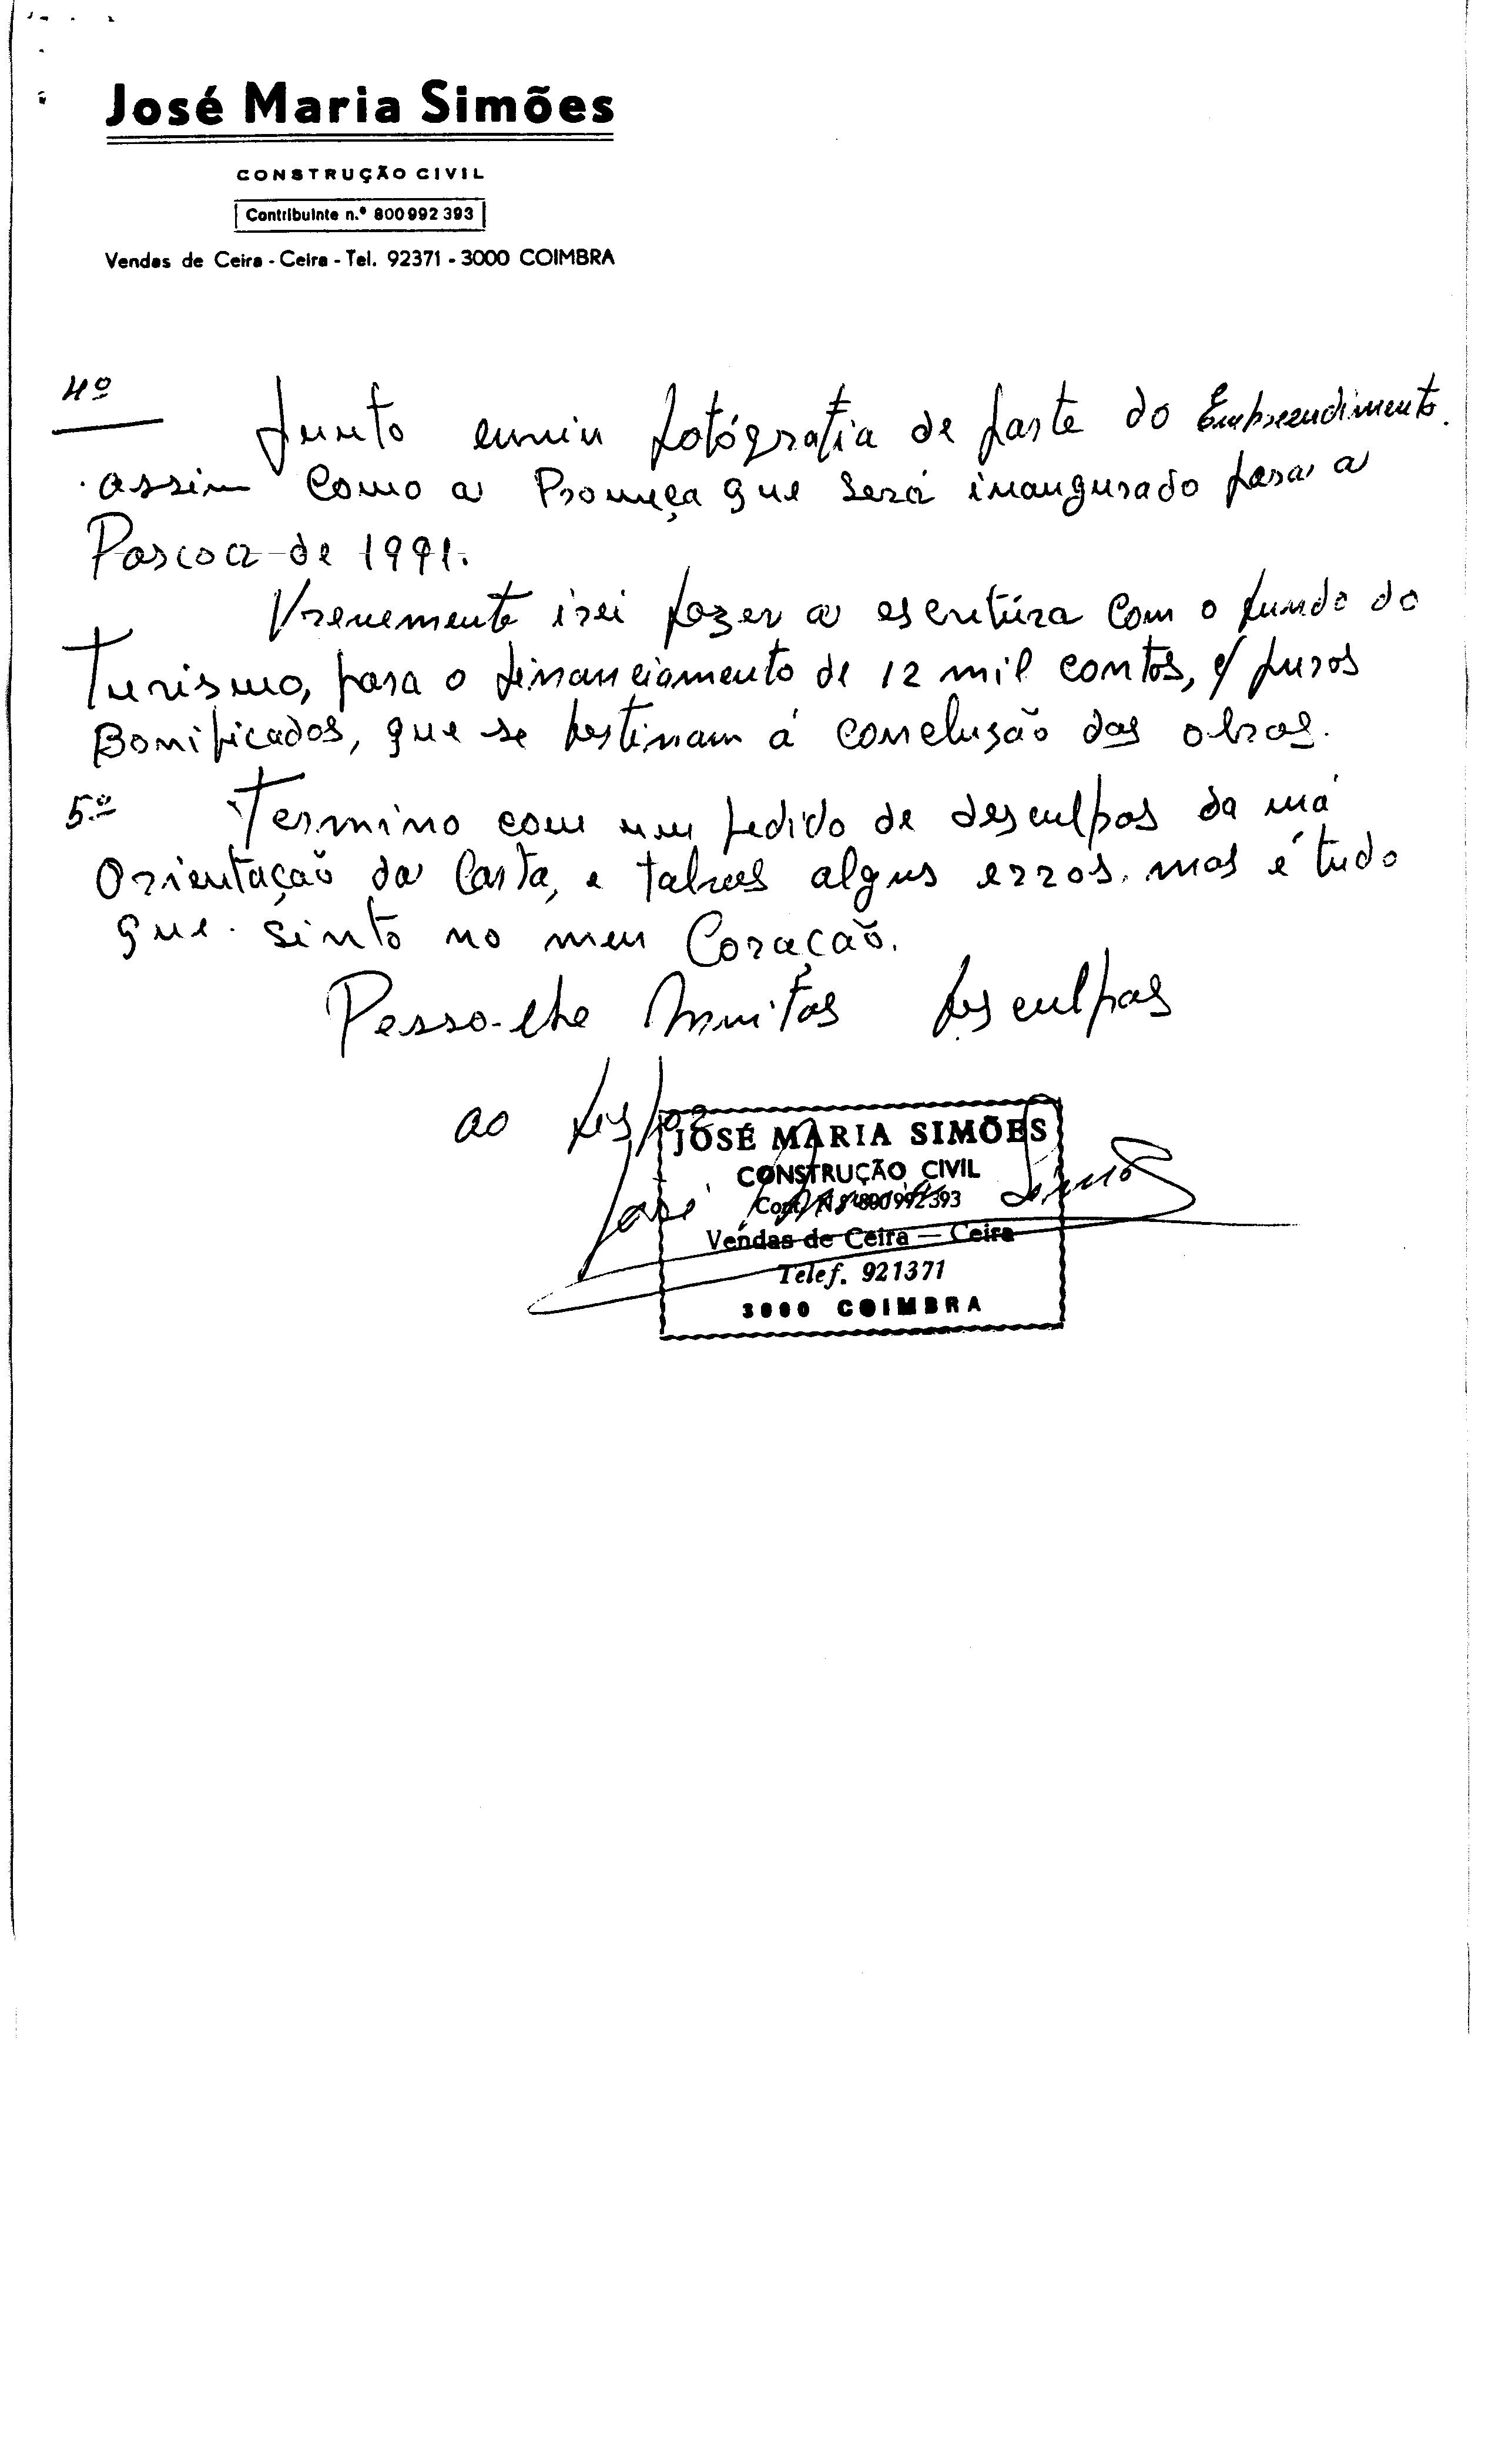 José Maria Simões
CONSTRUÇÃO CIVIL
Contribuinte n.º 800 992 393
Vendas de Ceira - Ceira - Tel. 92371 - 3000 COIMBRA
4º
Junto enviu fotógrafia de parte do Empreendimento.
assim como a Promeça que será inaugurado para a
Pascoa de 1991.
Vrevemente irei fazer a escritúra com o fundo do
Turismo, para o financiamento de 12 mil contos, c/ juros
Bonificados, que se destinam á conclusão das obras.
5.º Termino com um pedido de desculpas da má
Orientação da Carta, e talves algus erros. mas é tudo
que sinto no meu Coração.
Pesso-lhe Muitas desculpas
ao dispor
JOSÉ MARIA SIMÕES
CONSTRUÇÃO CIVIL
Cont. N.º 800 992 393
José Maria Simões
Vendas de Ceira — Ceira
Telef. 921371
3000 COIMBRA